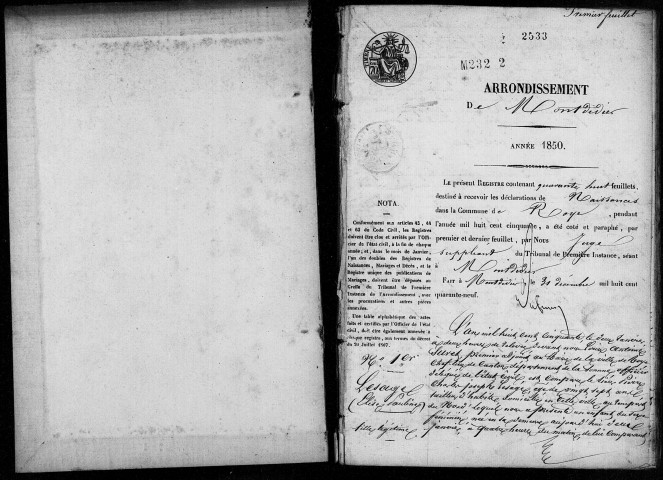 Premier feuillet
2533
M232 2
ARRONDISSEMENT
De Montdidier
ANNÉE 1850.
Le présent Registre contenant quarante huit feuillets,
destiné à recevoir les déclarations de Naissances
dans la Commune de Roye, pendant
l'année mil huit cent cinquante, a été coté et paraphé, par
premier et dernier feuillet, par Nous Juge
suppléant du Tribunal de Première Instance, séant
à Montdidier
Fait à Montdidier le 31 décembre mil huit cent
quarante-neuf.
NOTA.
Conformément aux articles 43, 44
et 63 du Code Civil, les Registres
doivent être clos et arrêtés par l'Offi-
cier de l'état civil, à la fin de chaque
année; et, dans le mois de Janvier,
l'un des doubles des Registres de
Naissances, Mariages et Décès, et le
Registre unique des publications de
Mariages, doivent être déposés au
Greffe du Tribunal de Première
Instance de l'Arrondissement, avec
les procurations et autres pièces
annexées.
Une table alphabétique des actes
faits et certifiés par l'Officier de l'état
civil, doit être également annexée à
chaque registre, aux termes du décret
du 20 Juillet 1807.
No 1er
Lesage
(Elise Pauline)
fille légitime
L'an mil huit cent cinquante le deux Janvier
à deux heures de relevée devant nous Louis
premier adjoint au Maire de la ville de Roye
chef lieu de Canton, département de la Somme, officier
de l'état civil, est comparu le sieur
Charles Joseph Lesage, âgé de vingt sept ans
tailleur d'habits, domicilié en cette ville,
du Nord lequel nous a présenté un enfant du sexe
féminin, née en sa demeure aujourd'hui deux
janvier, à quatre heures du matin, de lui comparant